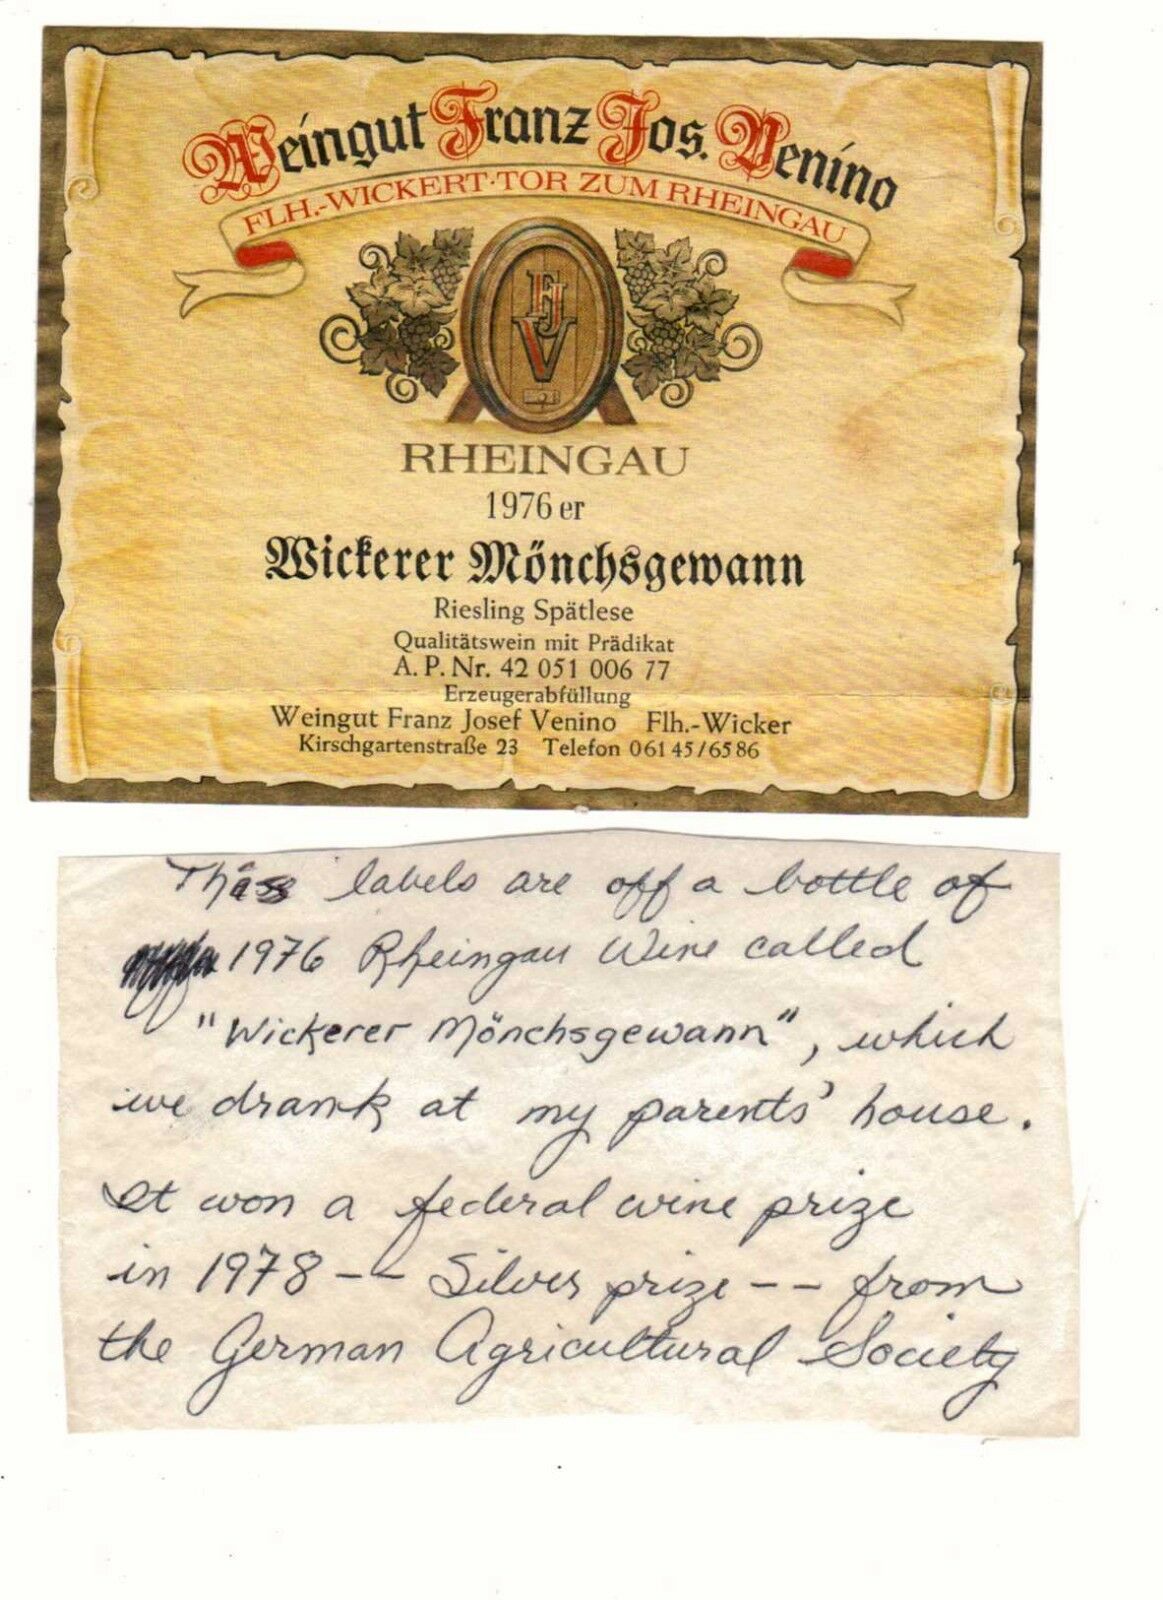 Weingut Franz Jos. Venino
FLH.-WICKERT·TOR ZUM RHEINGAU
FJV
RHEINGAU
1976 er
Wickerer Mönchsgewann
Riesling Spätlese
Qualitätswein mit Prädikat
A. P. Nr. 42 051 006 77
Erzeugerabfüllung
Weingut Franz Josef Venino Flh.-Wicker
Kirschgartenstraße 23 Telefon 061 45/65 86
These labels are off a bottle of
1976 Rheingau Wine called
"Wickerer Mönchsgewann", which
we drank at my parents' house.
It won a federal wine prize
in 1978 -- Silver prize -- from
the German Agricultural Society